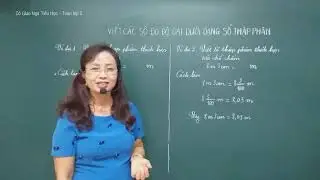 Cô Giáo Nga Tiểu Học - Toán lớp 5
VIẾT CÁC SỐ ĐO ĐỘ DÀI DƯỚI DẠNG SỐ THẬP PHÂN
Ví dụ 1: Viết số thập phân thích hợp
m
Cách làm
Ví dụ 2: Viết số thập phân thích hợp
vào chỗ chấm
8m 3cm = m
Cách làm
8m 3cm = 8 3/100 m
8 3/100 m = 8,03 m
Vậy 8m 3cm = 8,03 m